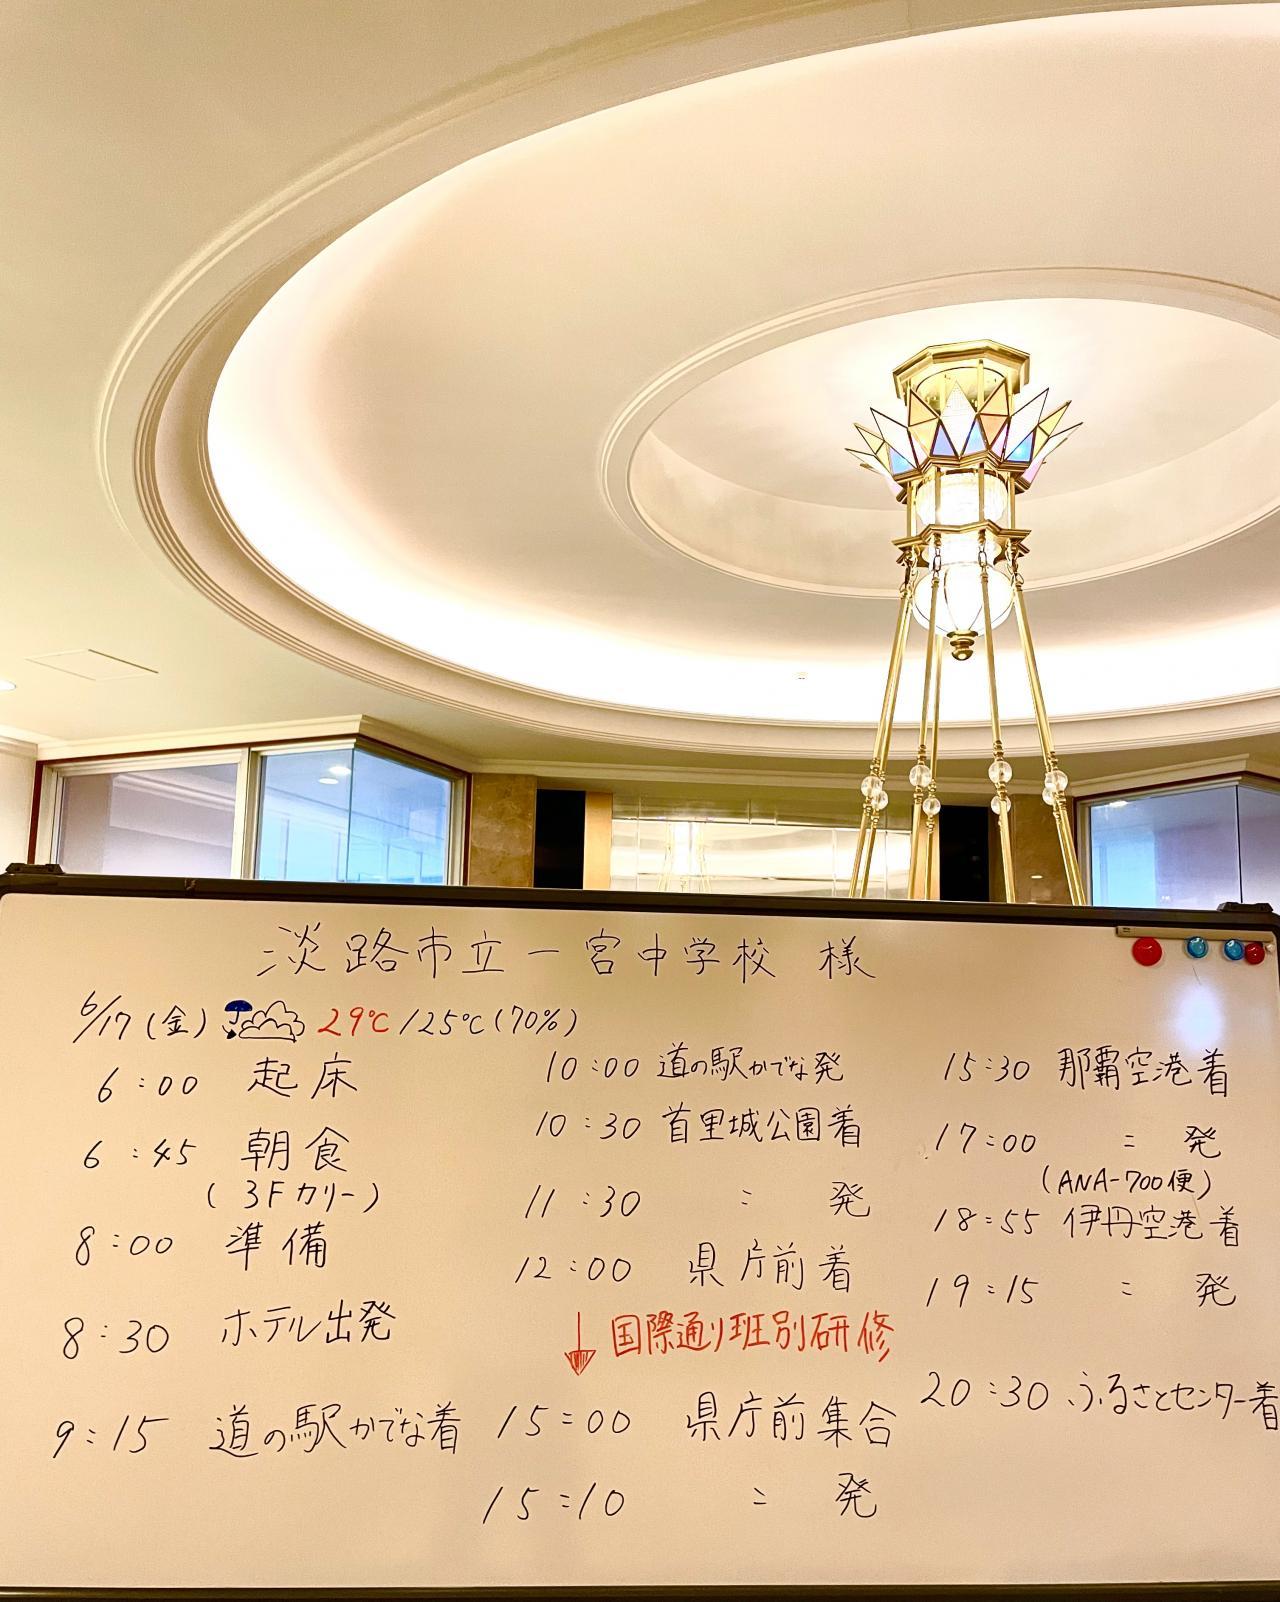 淡路市立一宮中学校 様
6/17(金) 29℃/25℃(70%)
6:00 起床
6:45 朝食
(3Fカリー)
8:00 準備
8:30 ホテル出発
9:15 道の駅かでな着
10:00 道の駅かでな発
10:30 首里城公園着
11:30 〃 発
12:00 県庁前着
↓ 国際通り班別研修
15:00 県庁前集合
15:10 〃 発
15:30 那覇空港着
17:00 〃 発
(ANA-700便)
18:55 伊丹空港着
19:15 〃 発
20:30 ふるさとセンター着